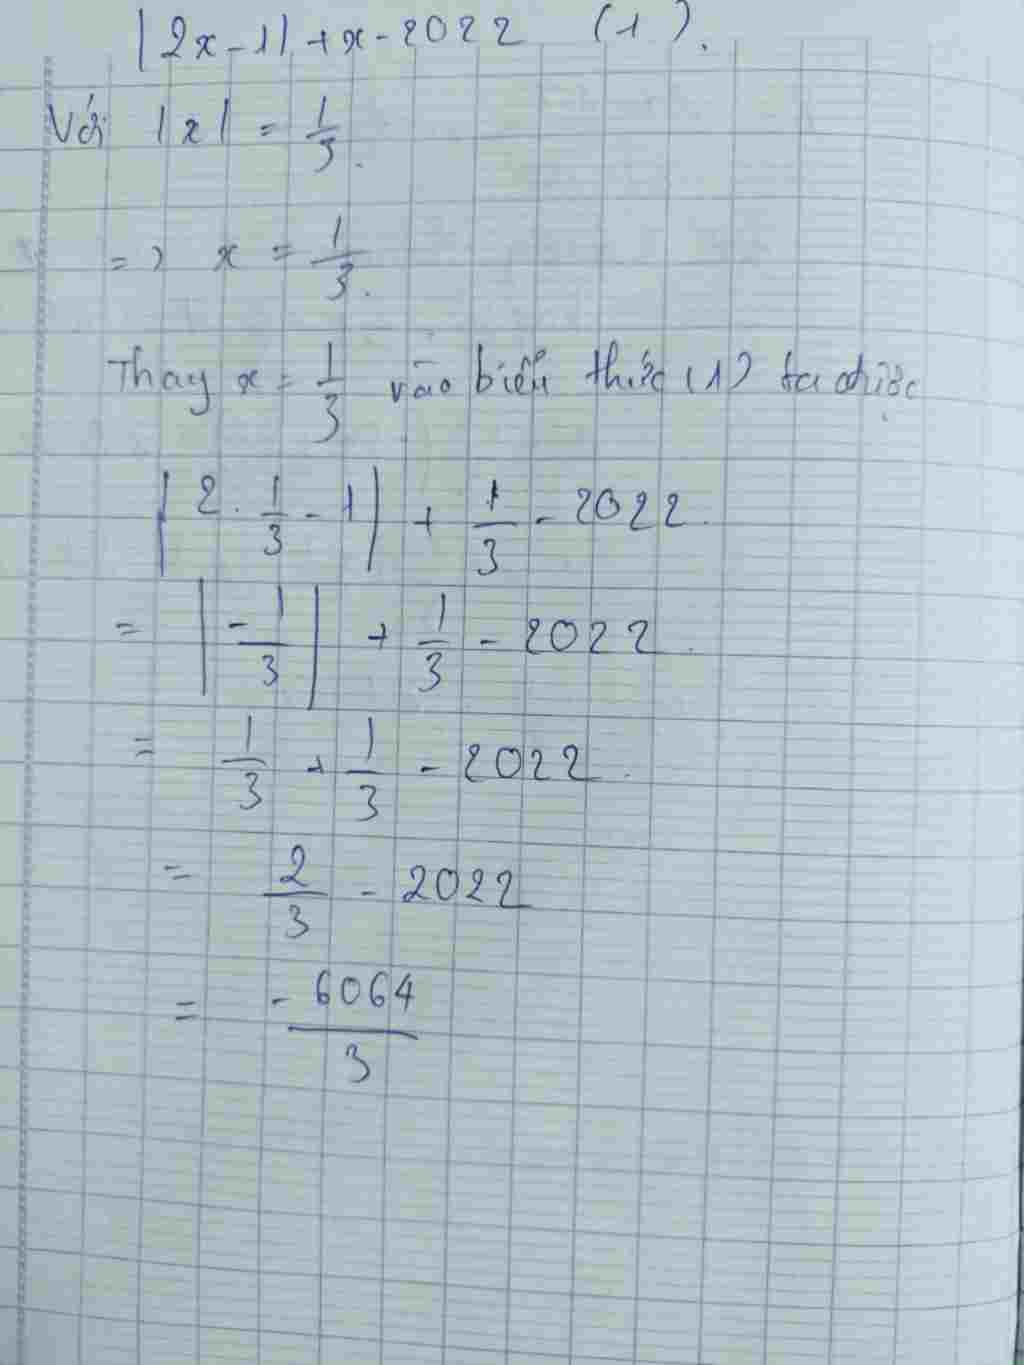 |2x - 1| + x - 2022 (1).
Với |x| = 1/3.
=> x = 1/3.
Thay x = 1/3 vào biểu thức (1) ta được
|2. 1/3 - 1| + 1/3 - 2022.
= |-1/3| + 1/3 - 2022.
= 1/3 + 1/3 - 2022.
= 2/3 - 2022
= -6064/3